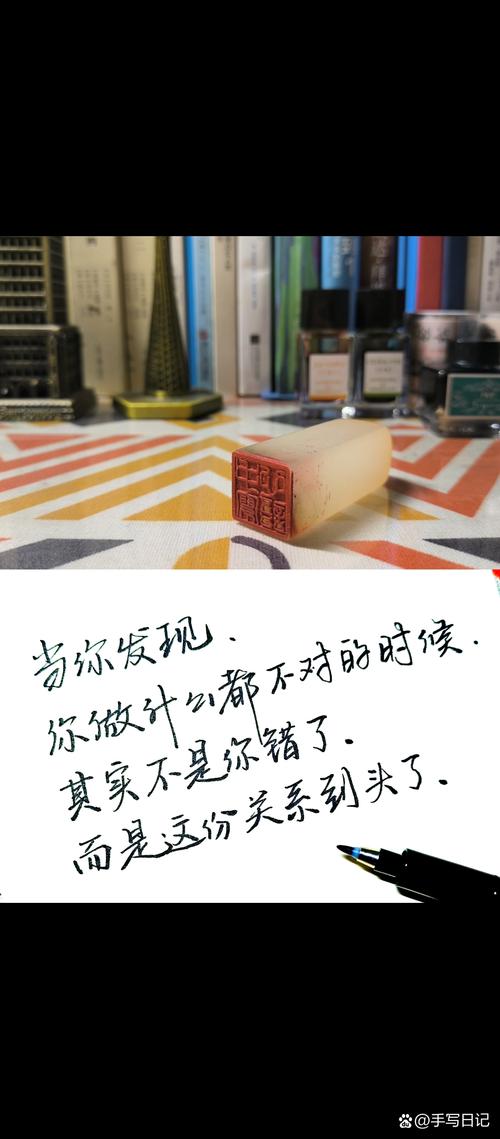 当你发现.
你做什么都不对的时候.
其实不是你错了.
而是这份关系到头了.
@手写日记